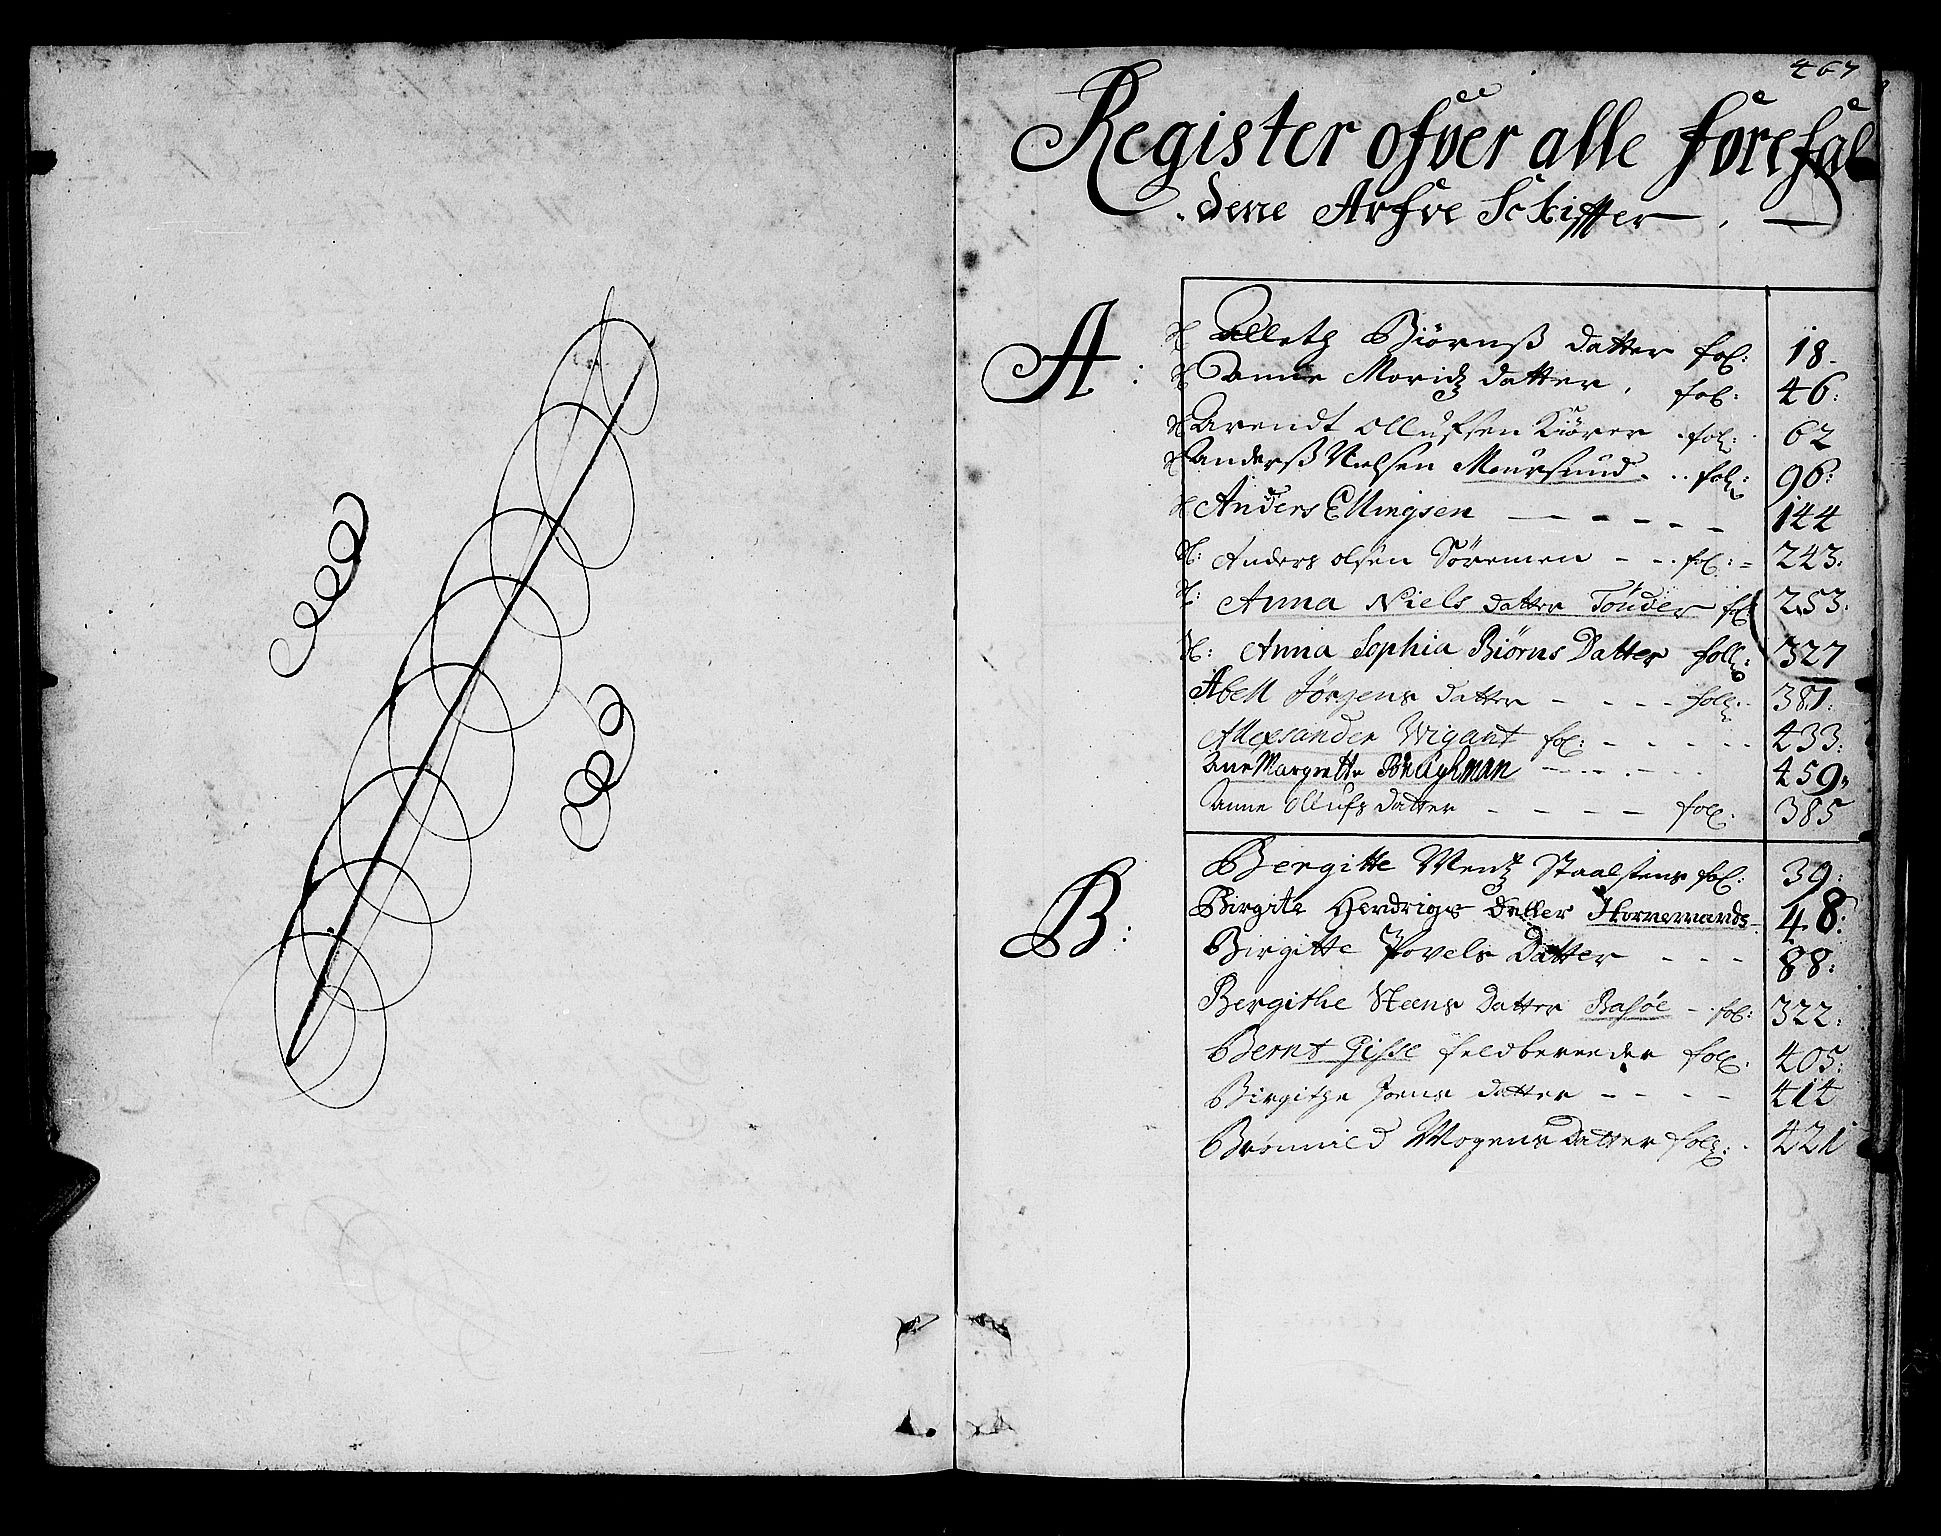 467
Register ofver alle forefal
dene Arfve Skiffter
A:
Alleth Biörnß datter fol: 18
Anne Moritz datter, fol: 46:
Arendt Ollufsen Kiörer fol: 62
Anderß Nielsen Moursund fol: 96:
Anders Ellingsen 144
Anders olsen Söremen fol: 243:
Anna Niels datter Tönder fol 253:
Anna Sophia Biörns Datter foll: 327
Abell Jörgens datter foll: 381:
Allexsander Wigant fol: 433:
Ane Margrette 459
Anne Ollufs datter fol: 385
B:
Bergitte Mentz Staalstens fol: 39:
Birgite Hendrigs Datter 48:
Birgitte Povels Datter 88:
Bergithe Steens Datter Basöe fol: 322:
Bernt Gisse feldbereeder fol: 405:
Birgithe Joens datter 414
Mogens Datter foll: 421